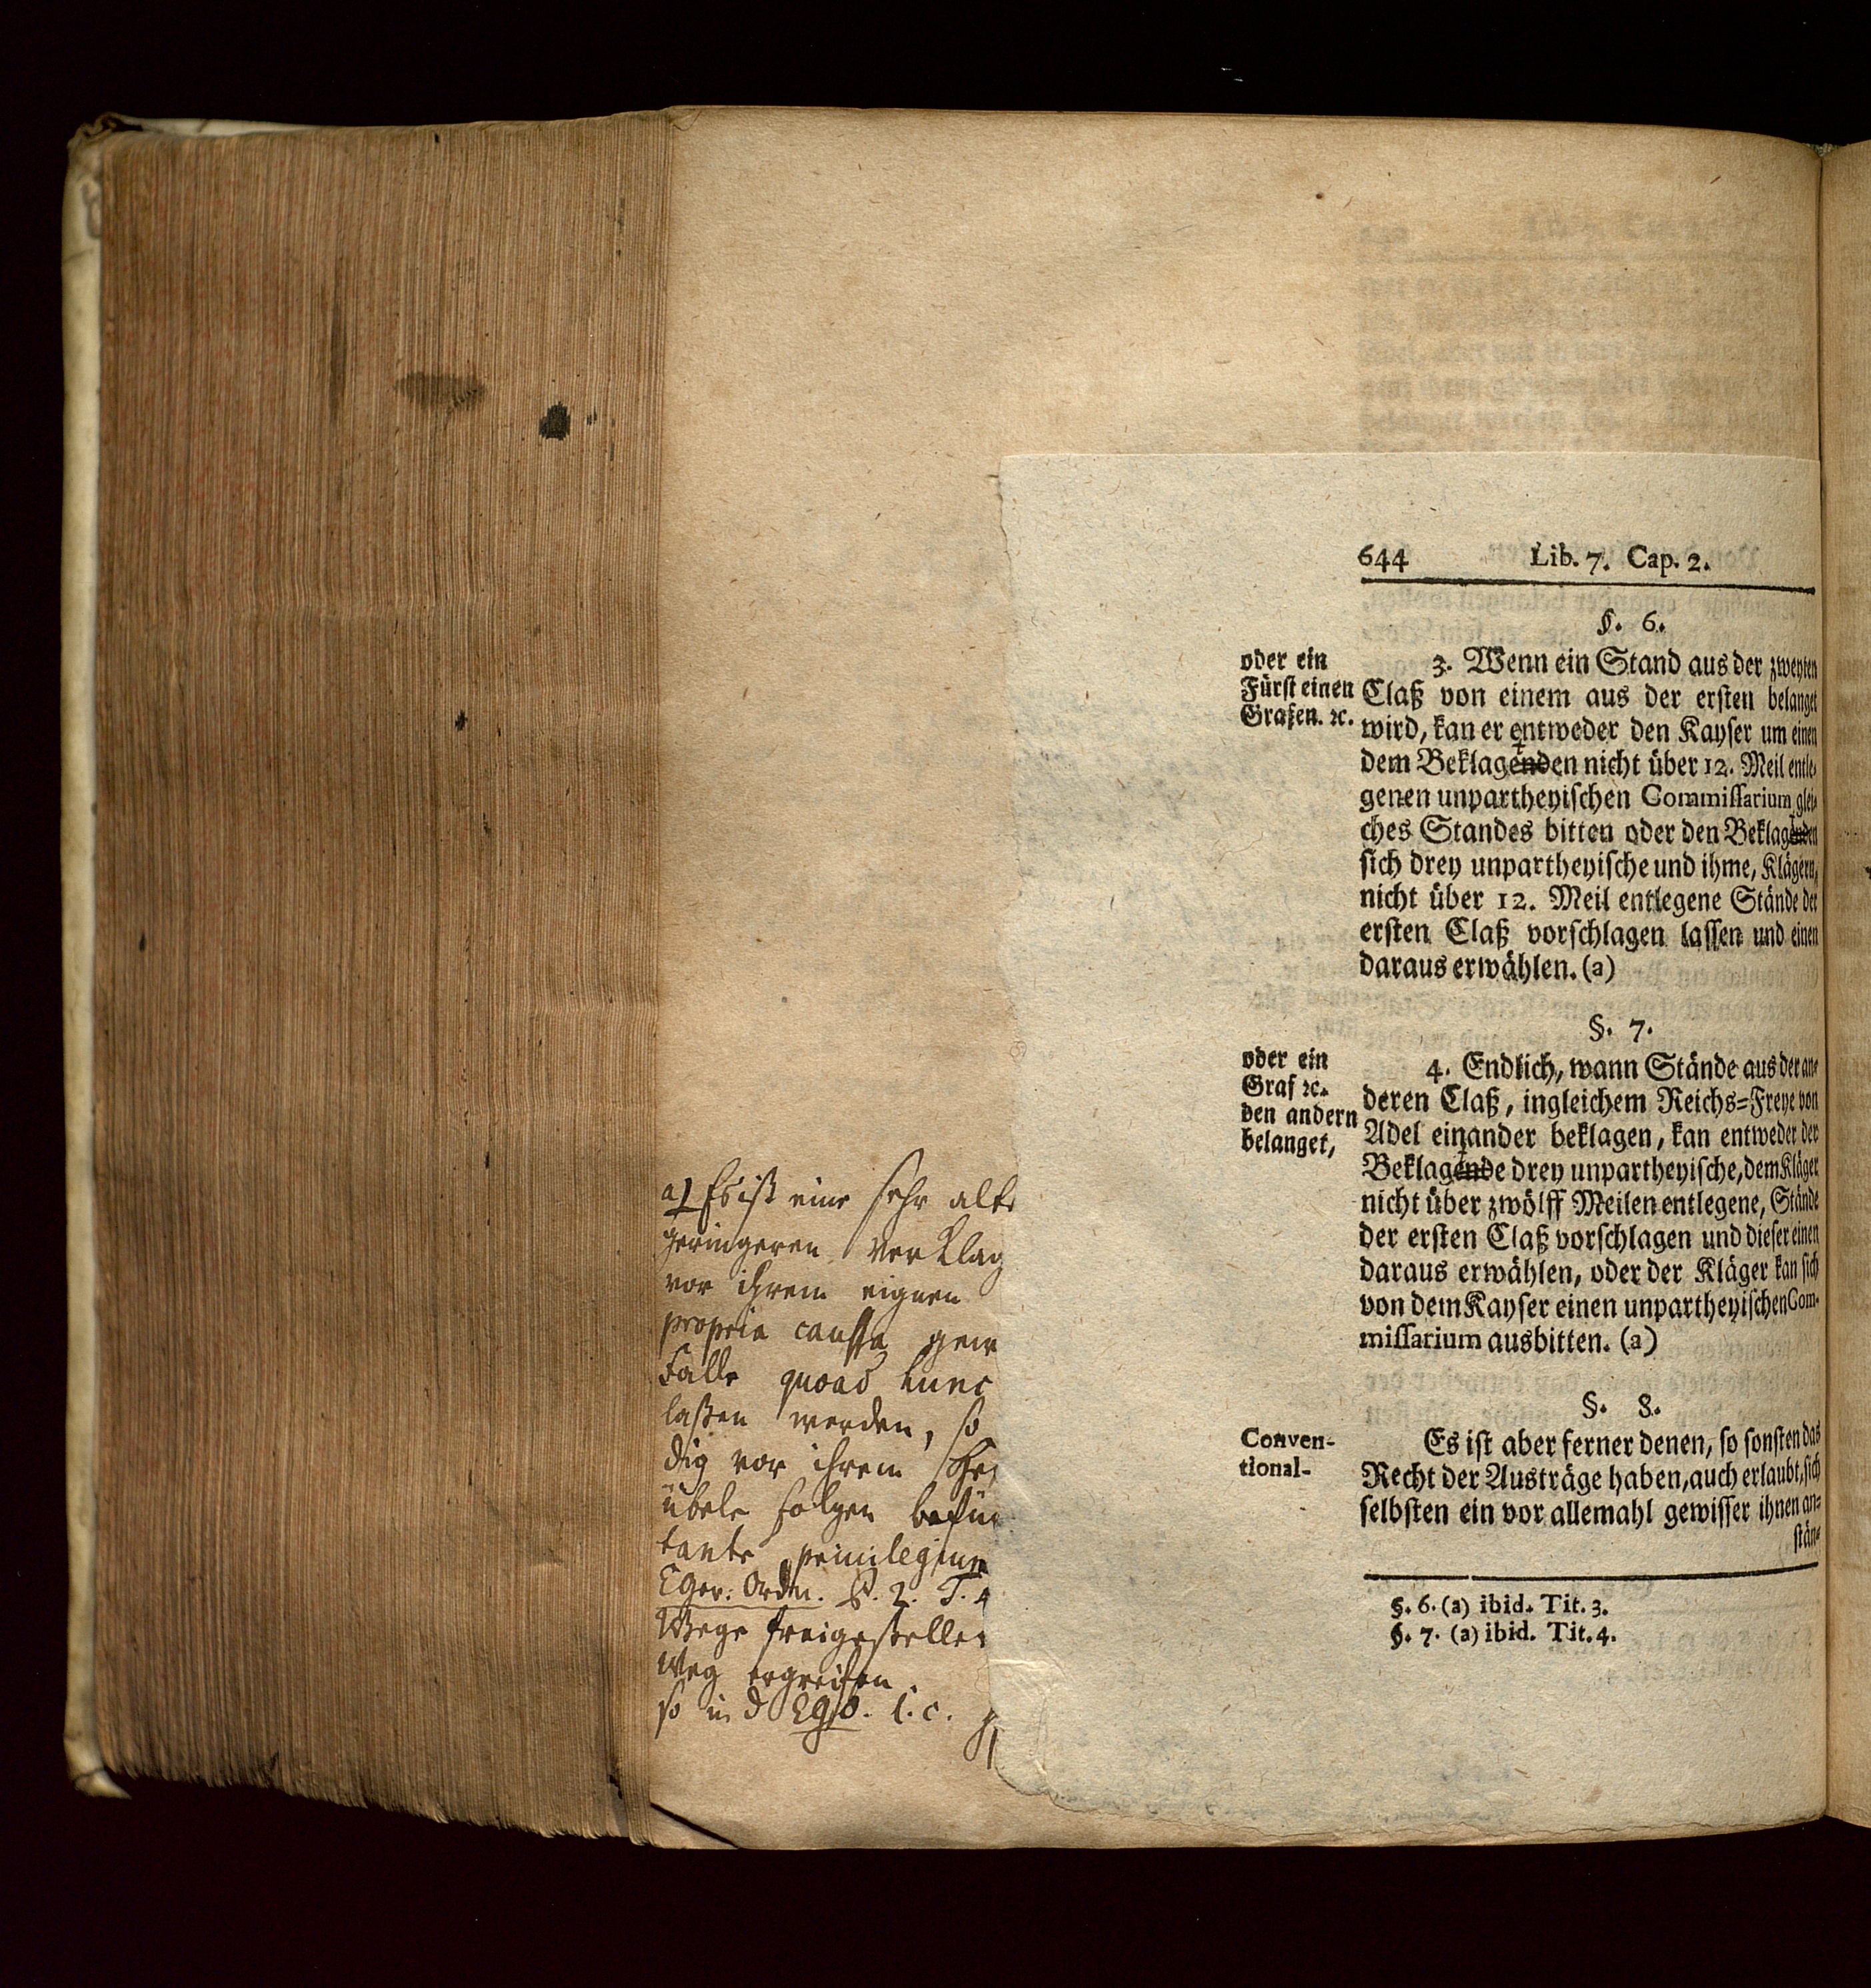 644 Lib. 7. Cap. 2.
§. 6.
oder ein
Fürst einen
Grafen. ꝛc.
3. Wenn ein Stand aus der zweyten
Claß von einem aus der ersten belanget
wird, kan er entweder den Kayser um einen
dem Beklagenden nicht über 12. Meil entle-
genen unpartheyischen Commissarium glei-
ches Standes bitten oder den Beklagenden
sich drey unpartheyische und ihme, Klägern,
nicht über 12. Meil entlegene Stände der
ersten Claß vorschlagen lassen und einen
daraus erwählen. (a)
§. 7.
oder ein
Graf ꝛc.
den andern
belanget,
4. Endlich, wann Stände aus der an-
deren Claß, ingleichem Reichs-Freye von
Adel einander beklagen, kan entweder der
Beklagende drey unpartheyische, dem Kläger
nicht über zwölff Meilen entlegene, Stände
der ersten Claß vorschlagen und dieser einen
daraus erwählen, oder der Kläger kan sich
von dem Kayser einen unpartheyischen Com-
missarium ausbitten. (a)
§. 8.
Conven-
tional-
Es ist aber ferner denen, so sonsten das
Recht der Austräge haben, auch erlaubt, sich
selbsten ein vor allemahl gewisser ihnen an-
stän-
§. 6. (a) ibid. Tit. 3.
§. 7. (a) ibid. Tit. 4.
a) Es ist eine sehr alte
geringeren verklag
vor ihrem eignen
propria caussa
Falle quoad hunc
laßen werden, so
dig vor ihrem
übele Folgen
tante privilegium
CGer: Ordn. P. 2. T. 4
Wege freigestellet
Weg ergreifen.
so in d CGO. l. c.